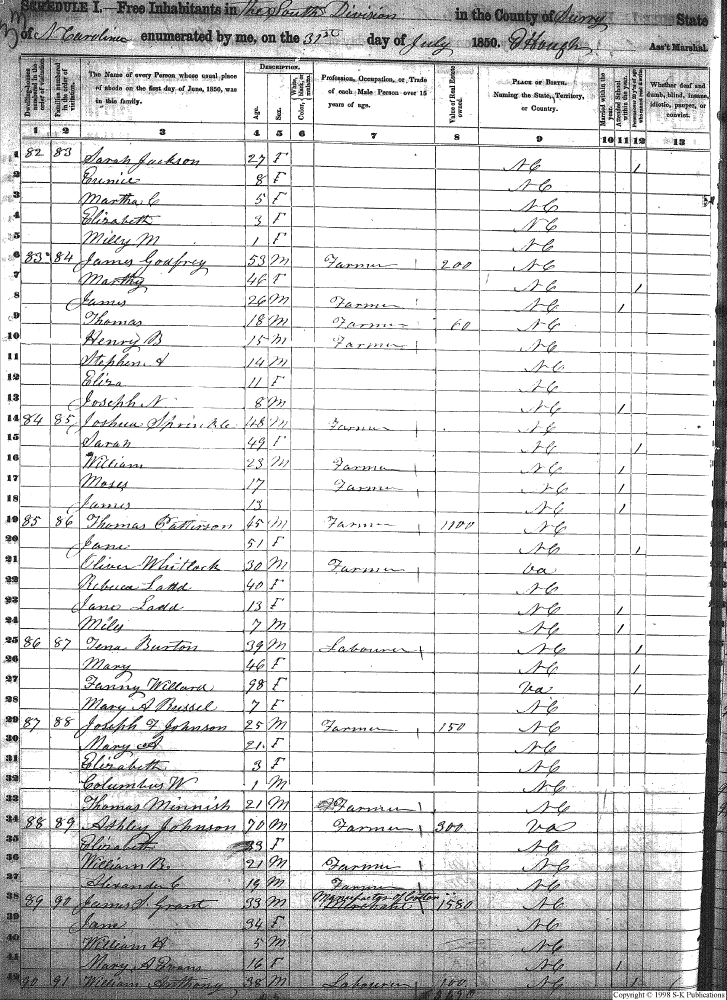 SCHEDULE I.—Free Inhabitants in The South Division in the County of Surry State
of N Carolina enumerated by me, on the 31st day of July 1850. Ass't Marshal.
Dwelling-houses numbered in the order of visitation.
Families numbered in the order of visitation.
The Name of every Person whose usual place of abode on the first day of June, 1850, was in this family.
DESCRIPTION.
Age.
Sex.
White, black, or mulatto.
Color,
Profession, Occupation, or Trade of each Male Person over 15 years of age.
Value of Real Estate owned.
PLACE OF BIRTH. Naming the State, Territory, or Country.
Married within the year.
Attended School within the year.
Whether deaf and dumb, blind, insane, idiotic, pauper, or convict.
1 2 3 4 5 6 7 8 9 10 11 12 13
1 82 83 Sarah Jackson 27 F NC /
2 Eunice 8 F NC
3 Martha C 5 F NC
4 Elizabeth 3 F NC
5 Milly M 1 F NC
6 83 84 James Godfrey 53 M Farmer 200 NC
7 Martha 46 F NC /
8 James 26 M Farmer NC /
9 Thomas 18 M Farmer 60 NC
10 Henry B 15 M Farmer NC
11 Stephen A 14 M NC
12 Eliza 11 F NC
13 Joseph N 8 M NC /
14 84 85 Joshua Sprinkle 48 M Farmer NC
15 Sarah 49 F NC /
16 William 23 M Farmer NC /
17 Moses 17 Farmer NC /
18 James 13 NC /
19 85 86 Thomas Patterson 45 M Farmer 1100 NC
20 Jane 51 F NC /
21 Oliver Whitlock 30 M Farmer Va
22 Rebecca Ladd 40 F NC
23 Jane Ladd 13 F NC /
24 Miles 7 M NC /
25 86 87 Burton 39 M Labourer NC /
26 Mary 46 F NC /
27 Fanny Willard 98 F Va /
28 Mary A Russel 7 F NC
29 87 88 Joseph F Johnson 25 M Farmer 150 NC
30 Mary A 21 F NC
31 Elizabeth 3 F NC
32 Columbus W 1 M NC
33 Thomas Minnish 21 M Farmer NC
34 88 89 Ashley Johnson 70 M Farmer 300 Va
35 Elizabeth 33 F NC
36 William B. 21 M Farmer NC
37 Alexander C 19 M Farmer NC
38 89 90 James S. Grant 33 M Manufactor of Cotton Merchant 1580 NC
39 Jane 34 F NC
40 William H 5 M NC
41 Mary A Evans 16 F NC /
42 90 91 William Anthony 38 M Labourer 100 NC /
Copyright © 1998 S-K Publications